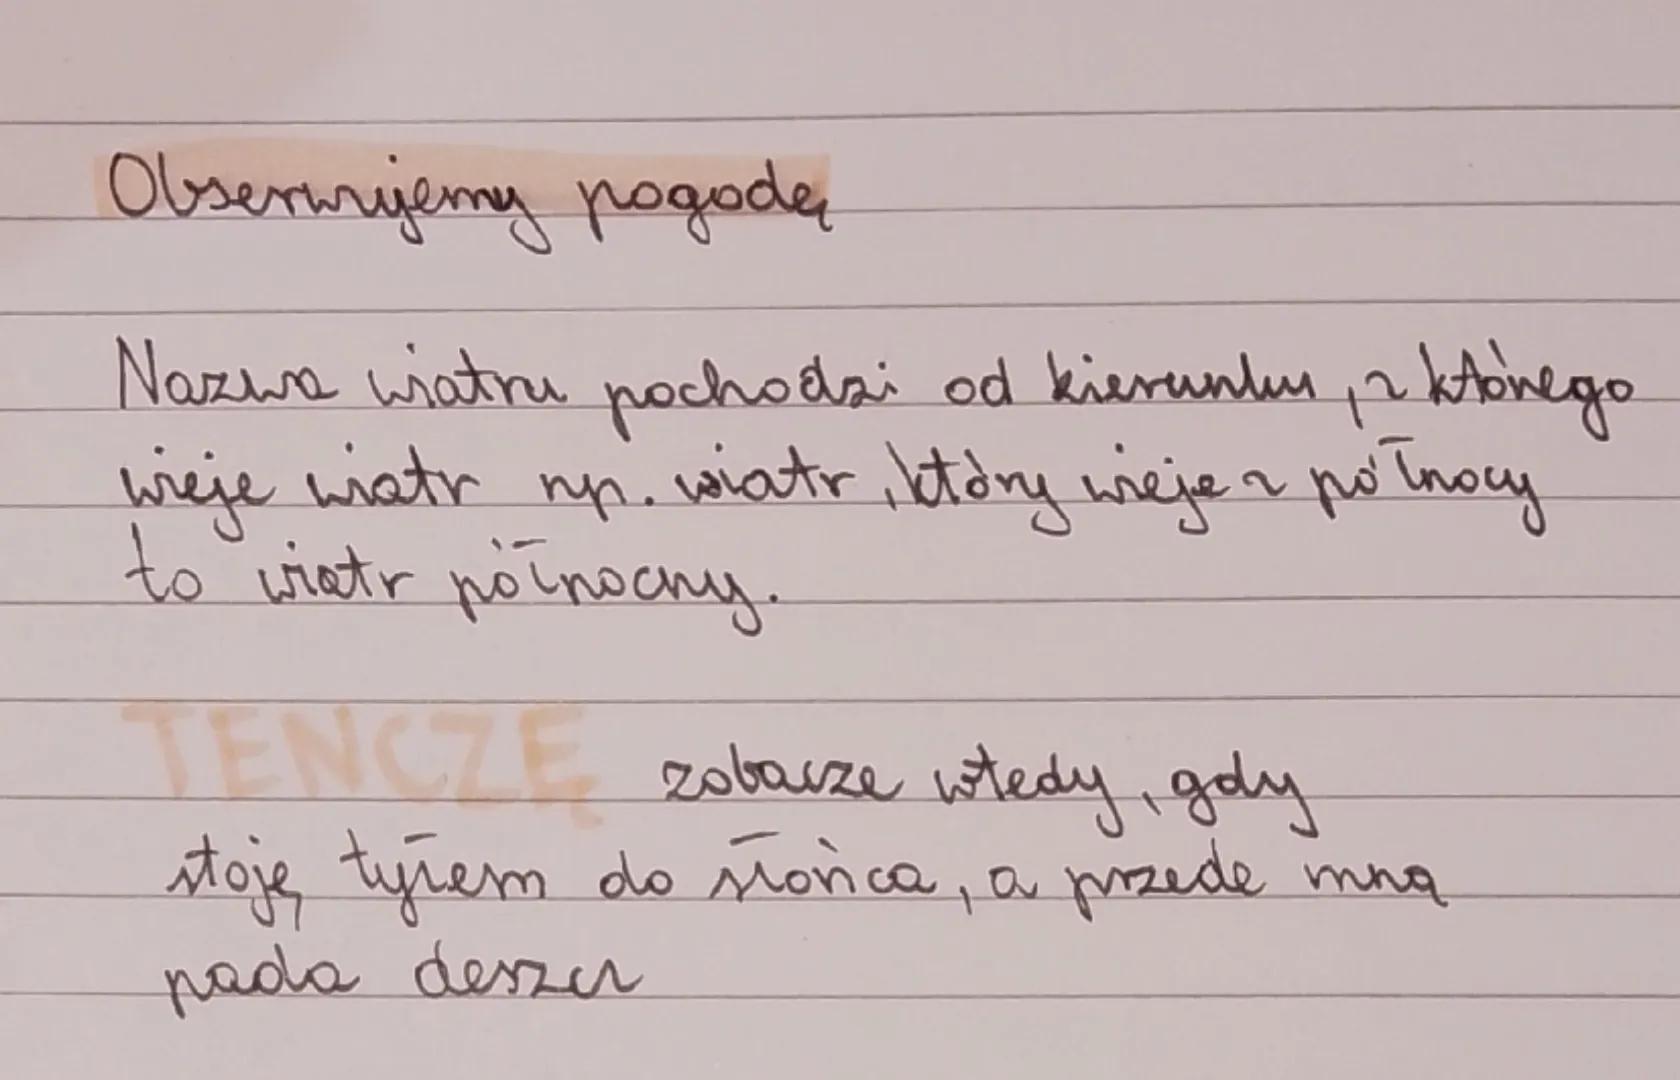 Obserwujemy pogodę
Nazwa wiatru pochodzi od kierunku, z którego
wieje wiatr np. wiatr, który wieje z północy
to wiatr północny.
TENCZĘ zobacze wtedy, gdy
stoję tyłem do słońca, a przede mną
pada deszcz